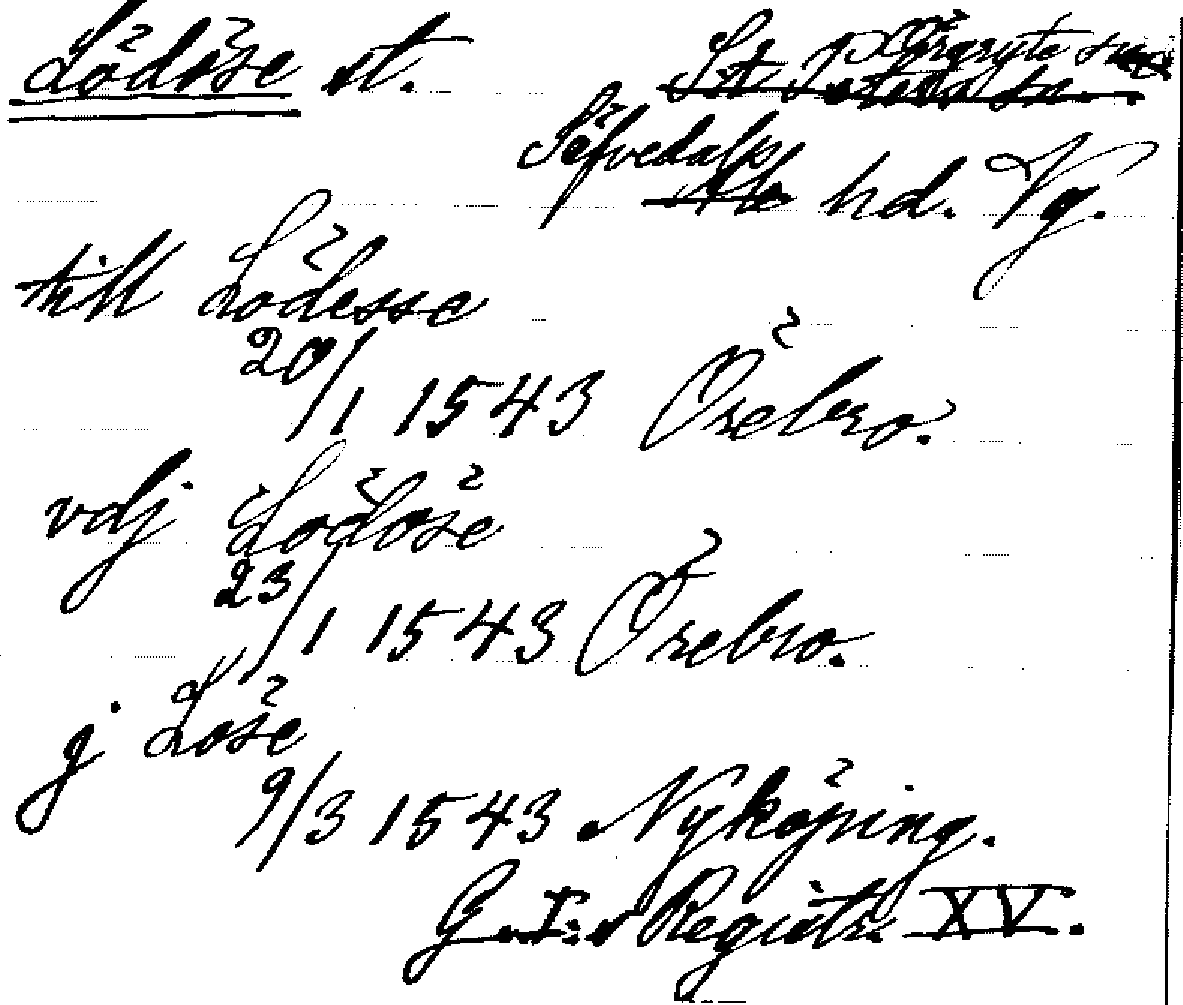 Lödöse st. Örgryte sn
St. Peters sn.
Säfvedals
Ale hd. Vg.
till Lödesse
20/1 1543 Örebro.
vdj Lodöse
23/1 1543 Örebro.
j Löse
9/3 1543 Nyköping.
G. I:s Registr. XV.